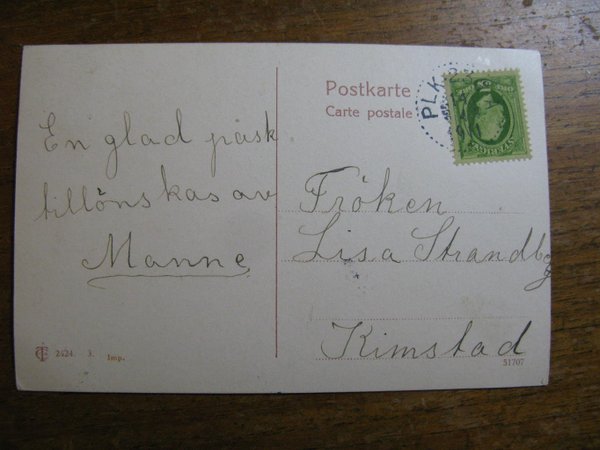 Postkarte
Carte postale
PLA
En glad påsk
tillönskas av
Manne
Fröken
Lisa Strandbg
Kimstad
2424. 3. Imp.
51707